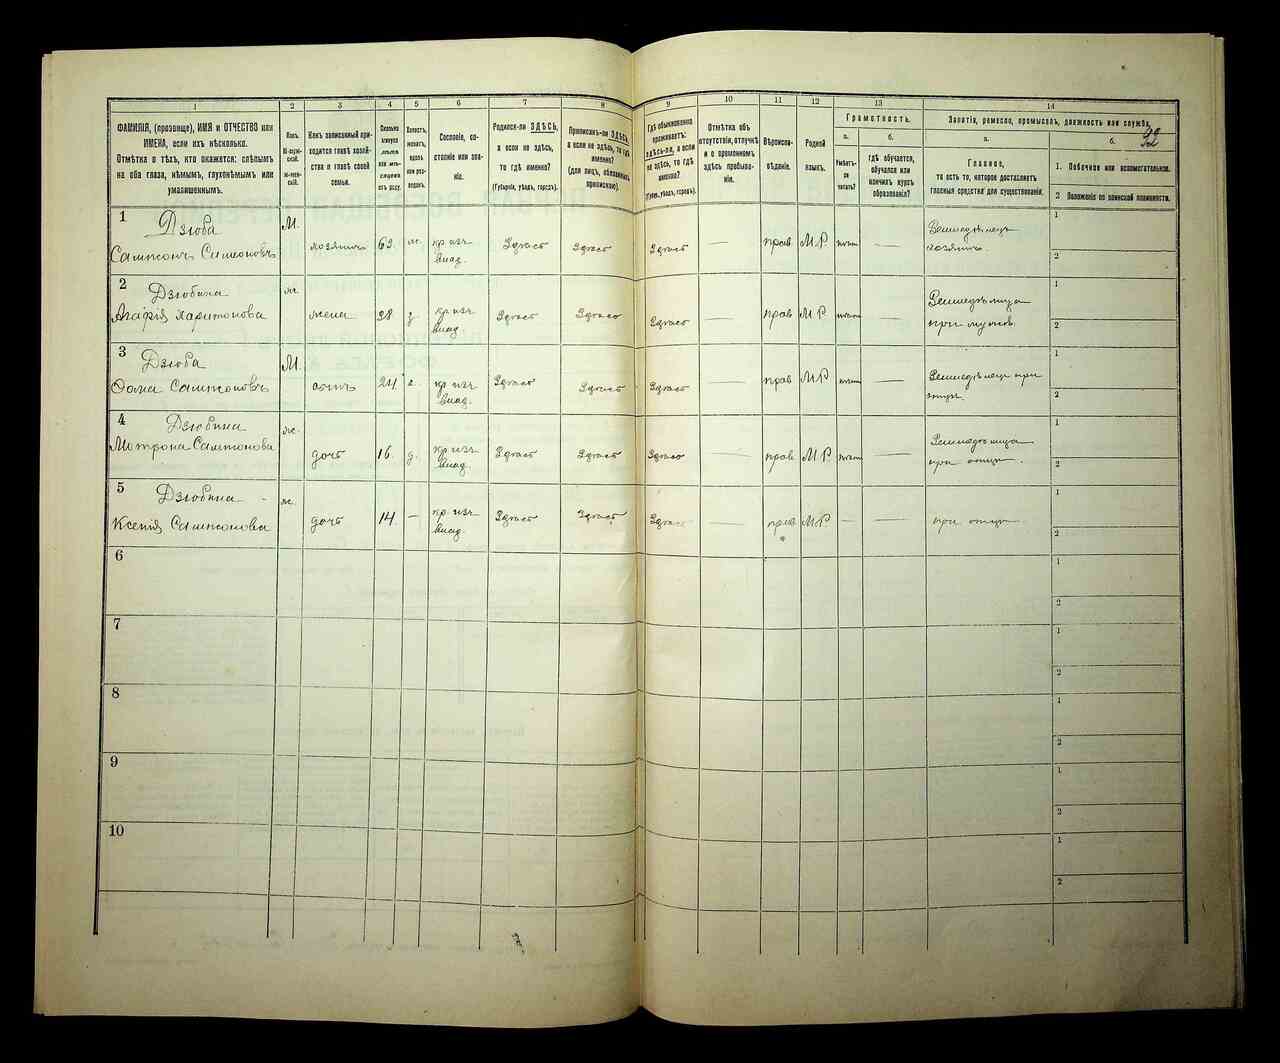 1 2 3 4 5 6 7 8 9 10 11 12 13 14
ФАМИЛІЯ, (прозвище), ИМЯ и ОТЧЕСТВО или
ИМЕНА, если ихъ нѣсколько.
Отмѣтка о тѣхъ, кто окажется: слѣпымъ
на оба глаза, нѣмымъ, глухонѣмымъ или
умалишеннымъ.
Полъ.
М-мужской.
Ж-женскій.
Какъ записанный при-
ходится главѣ хозяй-
ства и главѣ своей
семьи.
Сколько
минуло
лѣтъ
или мѣ-
сяцевъ
отъ роду.
Холостъ,
женатъ,
вдовъ
или раз-
веденъ.
Сословіе, со-
стояніе или зва-
ніе.
Родился-ли ЗДѢСЬ,
а если не здѣсь,
то гдѣ именно?
(Губернія, уѣздъ, городъ).
Приписанъ-ли ЗДѢСЬ,
а если не здѣсь, то гдѣ
именно?
(для лицъ, обязанныхъ
припискою).
Гдѣ обыкновенно
проживаетъ:
ЗДѢСЬ-ли, а если
не здѣсь, то гдѣ
именно?
(Губерн., уѣздъ, городъ).
Отмѣтка объ
отсутствіи, отлучкѣ
и о временномъ
здѣсь пребыва-
ніи.
Вѣроиспо-
вѣданіе.
Родной
языкъ.
Грамотность.
а. б.
Умѣетъ-
ли
читать?
гдѣ обучается,
обучался или
кончилъ курсъ
образованія?
Занятіе, ремесло, промыселъ, должность или служба.
а. б.
Главное,
то есть то, которое доставляетъ
главныя средства для существованія.
1. Побочное или вспомогательное.
2 Положеніе по воинской повинности.
92
1 Дзюба М.
Сампсонъ Симоновъ хозяинъ 63. ж. кр изъ Здѣсь Здѣсь Здѣсь — прав М.Р —
влад.
Земледѣлецъ
хозяинъ.
1
2
2 Дзюбина ж.
Агафія Харитонова жена 38 з кр изъ Здѣсь Здѣсь Здѣсь — прав М.Р —
влад.
Земледѣлица
при мужѣ.
1
2
3 Дзюба М.
Фома Сампсоновъ сынъ 24 х. кр изъ Здѣсь Здѣсь Здѣсь — прав М.Р —
влад.
Земледѣлецъ при
отцѣ.
1
2
4 Дзюбина ж.
Мотрона Сампсонова дочь 16. д. кр изъ Здѣсь Здѣсь Здѣсь — прав М.Р —
влад.
Земледѣлица
при отцѣ.
1
2
5 Дзюбина ж.
Ксенія Сампсонова дочь 14. — кр изъ Здѣсь Здѣсь Здѣсь — прав М.Р — —
влад.
при отцѣ
1
2
6
1
2
7
1
2
8
1
2
9
1
2
10
1
2